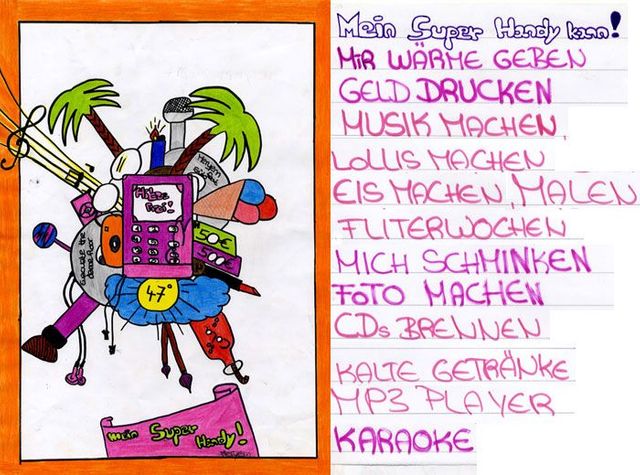 Hitze
Frei!
50€
500€
evacuate the
dance floor
47°
mein Super
Handy!
Mein Super Handy kann!
MIR WÄRME GEBEN
GELD DRUCKEN
MUSIK MACHEN,
LOLLIS MACHEN
EIS MACHEN, MALEN
FLITERWOCHEN
MICH SCHMINKEN
FOTO MACHEN
CDs BRENNEN
KALTE GETRÄNKE
MP3 PLAYER
KARAOKE